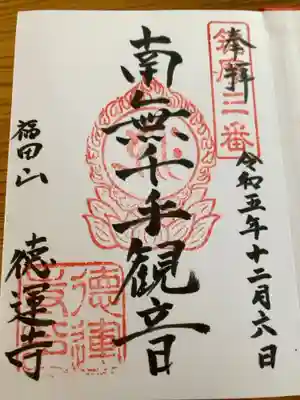 奉拝
三番
令和五年十二月六日
南無千手観音
福田山
徳運寺
徳運